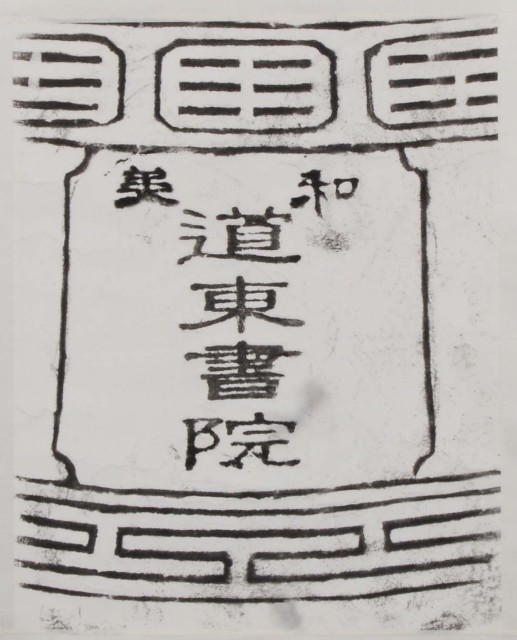 和美
道東書院